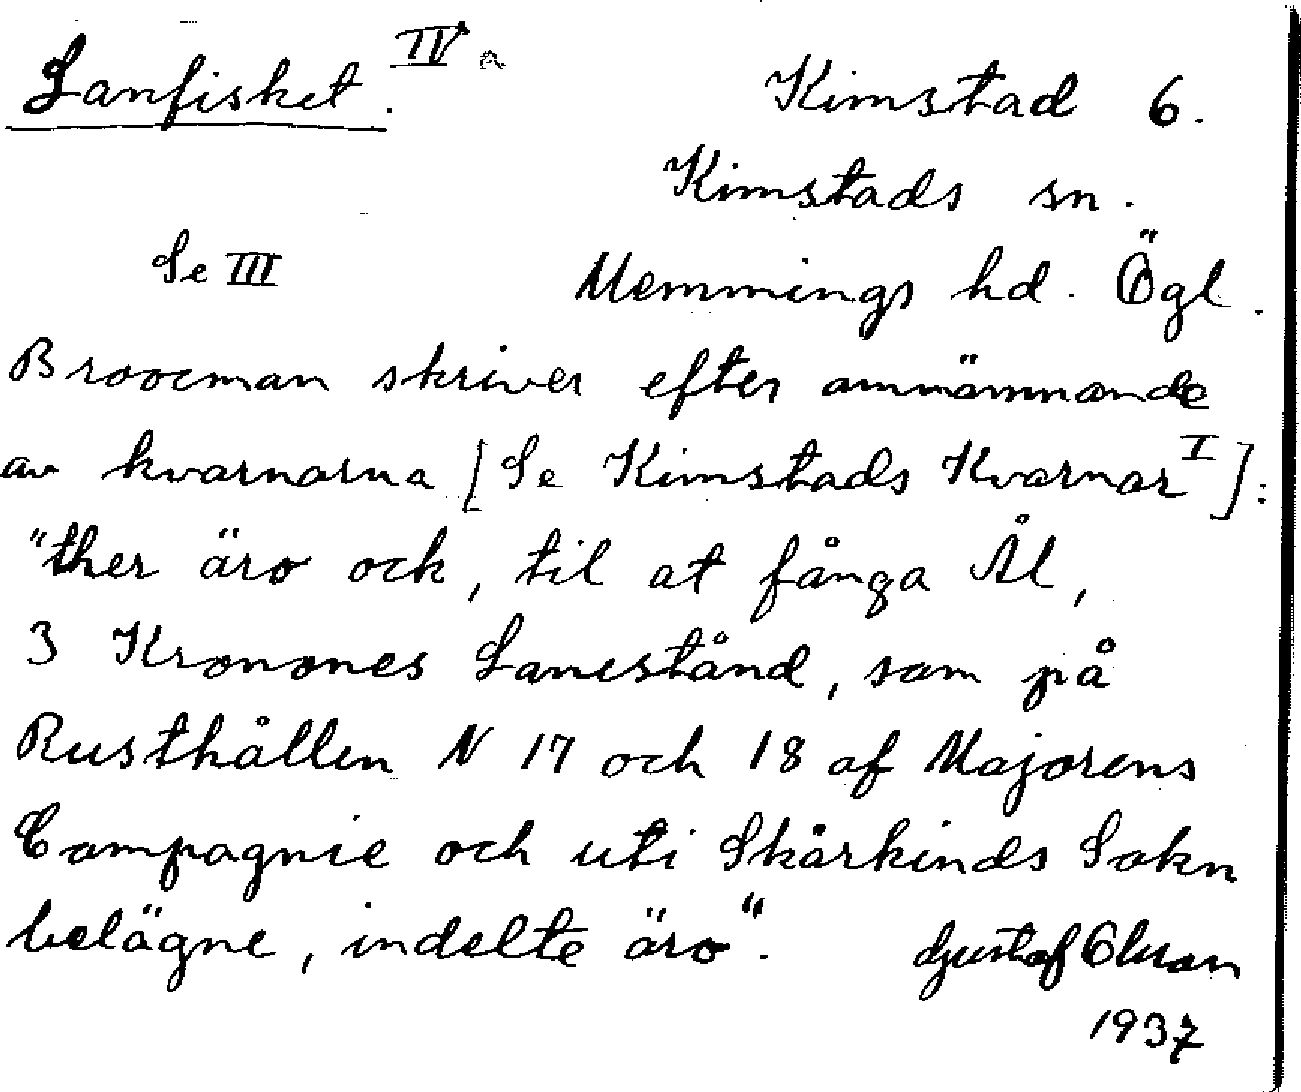 Lanfisket. IV a
Kimstad 6.
Kimstads sn.
Se III
Memmings hd. Ögl.
Broocman skriver efter omnämnande
av kvarnarna [Se Kimstads Kvarnar I]:
"ther äro ock, til at fånga Ål,
3 Kronones Lanestånd, som på
Rusthållen N 17 och 18 af Majorens
Compagnie och uti Skärkinds Sokn
belägne, indelte äro".
Gustaf Olsson
1937